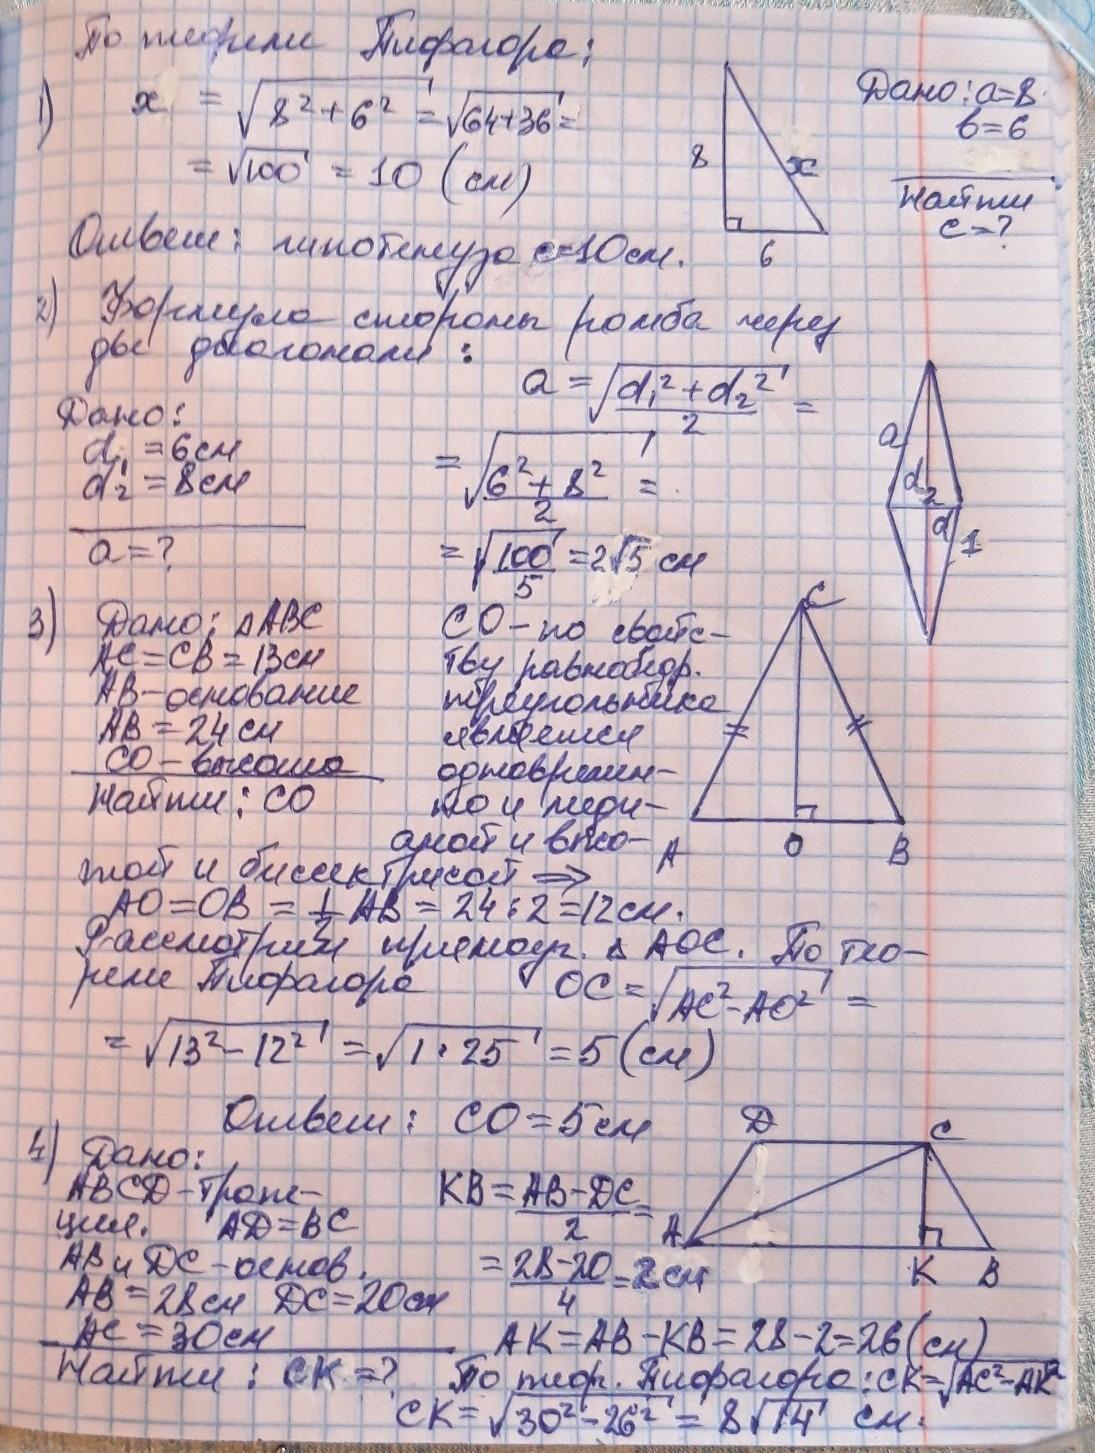 По теореме Пифагора:
1) x = √8²+6² = √64+36 =
= √100 = 10 (см)
8
x
6
Дано: a=8
b=6
Найти
c=?
Ответ: гипотенуза c=10см.
2) Формула стороны ромба через
две диагонали:
a = √d₁²+d₂²/2 =
Дано:
d₁ = 6см
d₂ = 8см
a = ?
= √6²+8²/2 =
= √100/5 = 2√5 см
a
d₂
d1
3) Дано: △ABC
AC=CB=13см
AB-основание
AB=24см
CO-высота
Найти: CO
CO-по свойс-
тву равнобедр.
треугольника
является
одновремен-
но и меди-
аной и высо-
той и биссектрисой ⇒
C
A
O
B
AO=OB = 1/2 AB = 24:2=12см.
Рассмотрим прямоуг. △ AOC. По тео-
реме Пифагора OC=√AC²-AO² =
= √13²-12² = √1·25 = 5 (см)
Ответ: CO=5см
4) Дано:
ABCD-трапе-
ция. AD=BC
AB и DC-основ.
AB=28см DC=20см
AC=30см
Найти: CK=?
KB = AB-DC/2 =
= 28-20/4 = 2см
D
C
A
K
B
AK=AB-KB=28-2=26(см)
По теор. Пифагора: CK=√AC²-AK²
CK=√30²-26² = 8√14 см.